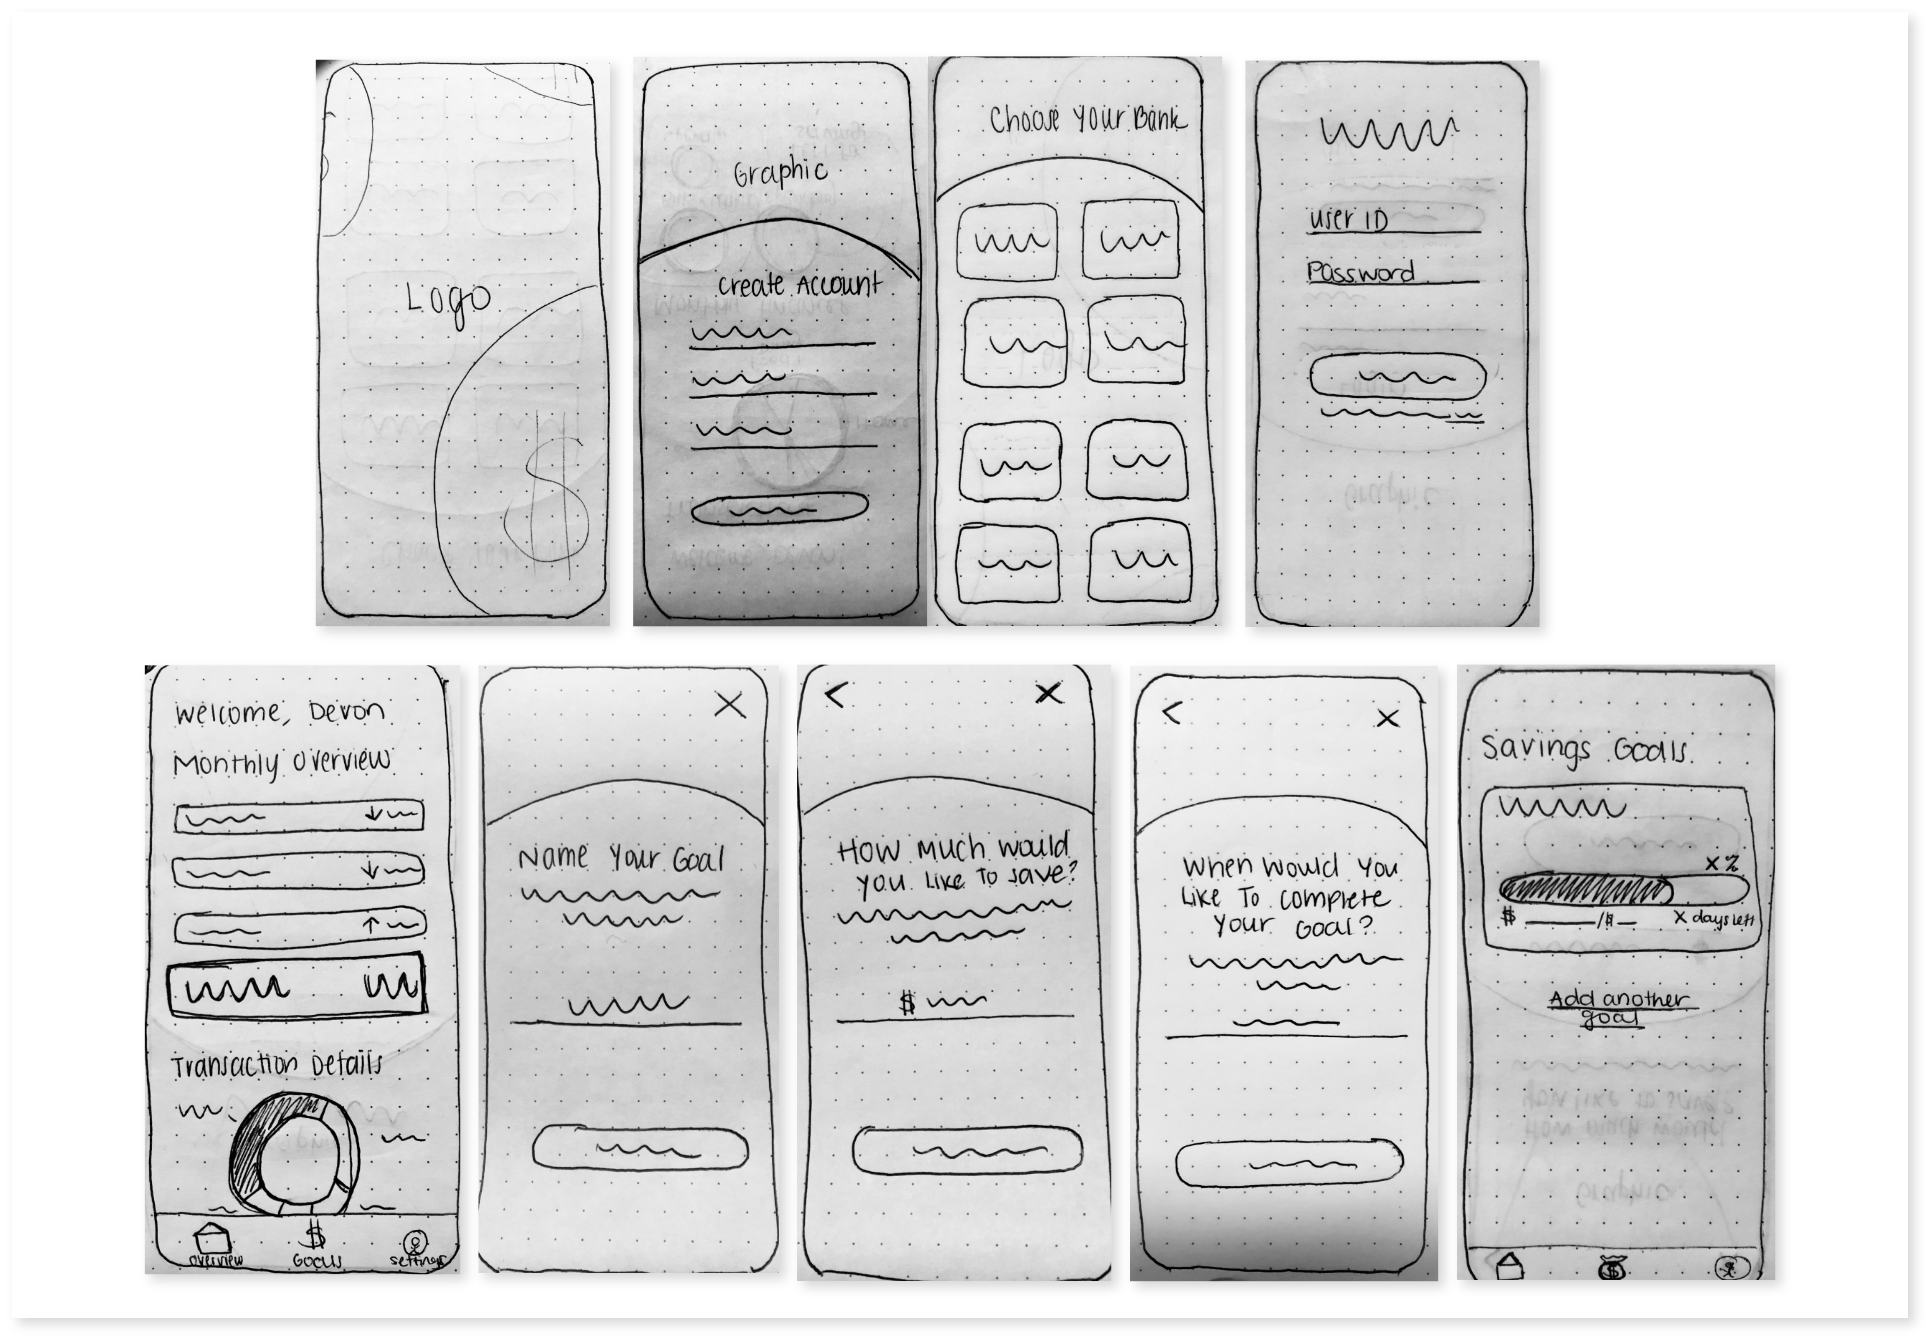 Logo
$
Graphic
Create Account
Choose Your Bank
User ID
Password
Welcome, Devon
Monthly Overview
Transaction Details
overview
$
Goals
settings
X
Name Your Goal
<
X
How Much would
you Like To save?
$
<
X
When would You
Like To complete
Your Goal?
Savings Goals
X%
$ /$
X days left
Add another
goal
$